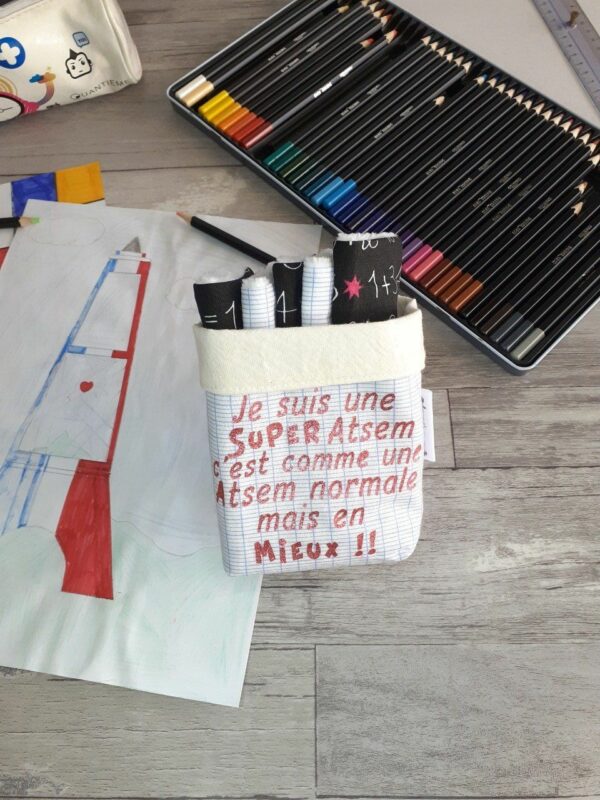 QUANTIEME
= 4 1+3
Je suis une
SUPER Atsem
c'est comme une
Atsem normale
mais en
MiEUX !!